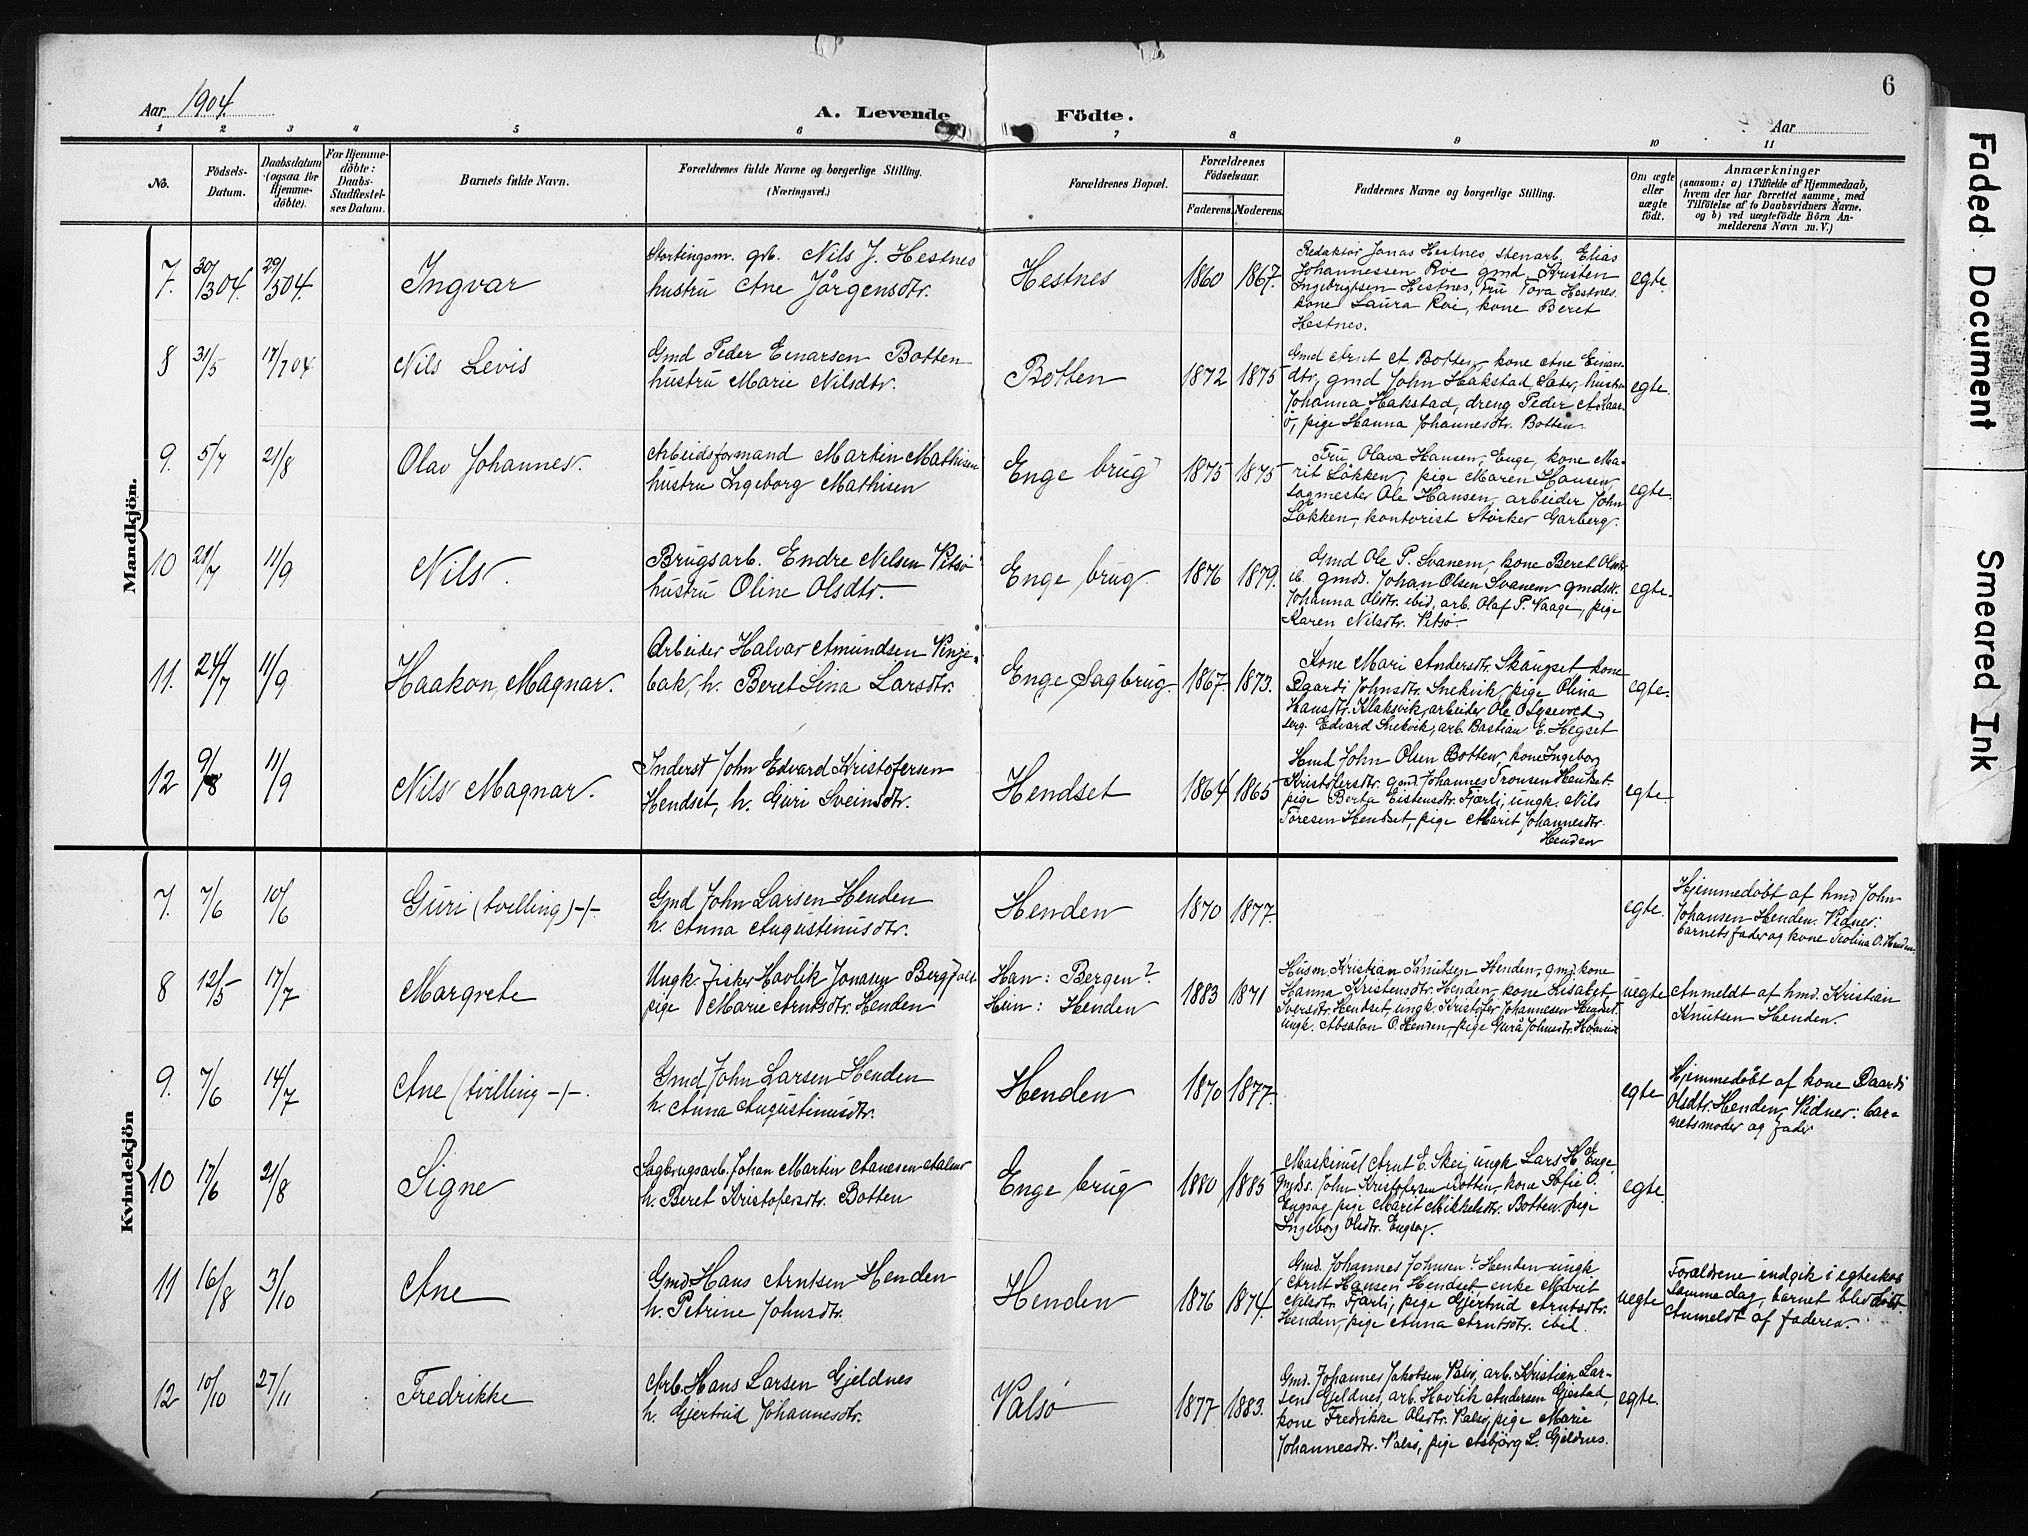 6
Aar 1904.
A. Levende Födte.
Aar
1 2 3 4 5 6 7 8 9 10 11
No.
Födsels-
Datum.
Daabsdatum
(ogsaa for
Hjemme-
döbte).
For Hjemme-
döbte:
Daabs-
Stadfæstel-
ses Datum.
Barnets fulde Navn.
Forældrenes fulde Navne og borgerlige Stilling.
(Næringsvei.)
Forældrenes Bopæl.
Forældrenes
Födselsaar.
Faderens. Moderens.
Faddernes Navne og borgerlige Stilling.
Om ægte
eller
uægte
födt.
Anmærkninger
(saasom: a) i Tilfælde af Hjemmedaab,
hvem der har forrettet samme, med
Tilföielse af to Daabsvidners Navne.
og b) ved uægtefödte Börn An-
melderens Navn m. V.)
Mandkjön.
7. 30/1304. 29/504. Ingvar
Stortingsm. grb. Nils J. Hestnes
hustru Ane Jørgensdtr.
Hestnes 1860 1867.
Redaktør Jonas Hestnes, stenarb. Elias
Johannessen Roe gmd. Kristen
Ingebrigtsen Hestnes, Fru Tova Hestnes.
kone Laura Roe, kone Beret
Hestnes.
egte.
8 31/5 17/704 Nils Levis
Gmd Peder Einarsen Botten
hustru Marie Nilsdtr.
Botten 1872 1875
Gmd Arnt A. Botten, kone Ane Einars-
dtr, gmd John Hakstad, Sater, hustru
Johanna Hakstad, dreng Peder A. Kaar-
ö, pige Hanna Johannesdtr. Botten.
egte.
9. 5/7 21/8 Olav Johannes.
Arbeidsformand Martin Mathisen
hustru Ingeborg Mathisen
Enge brug 1875 1875
Fru Olava Hansen, Enge, kone Ma-
rit Løkken, pige Maren Hansen
sagmester Ole Hansen, arbeider John
Løkken, kontorist Størker Garberg.
egte.
10 21/7 11/9 Nils.
Brugsarb. Endre Nilsen Vitsø
hustru Oline Olsdtr.
Enge brug. 1876 1879.
Gmd Ole P. Svanem, kone Beret Olsdtr
ib. gmds. Johan Olsen Svanem gmdsdt.
Johanna Olsdtr. ibid, arb. Olaf P. Vaage, pige
Karen Nilsdtr. Vitsø.
egte.
11. 24/7 11/9 Haakon Magnar.
Arbeider Halvar Amundsen Vinje-
bak, h. Beret Lina Larsdtr.
Enge Sagbrug. 1867 1873.
Kone Mari Andersdtr. Skaugset kone
Daardi Johnsdtr. Snekvik, pige Olina
Hansdtr. Klaksvik, arbeider Ole O Lysevold
arb. Edvard Snekvik, arb. Bastian E. Hegset
egte.
12 9/8 11/9 Nils Magnar.
Inderst John Edvard Kristofersen
Hendset, h. Guri Sveinsdtr.
Hendset 1864 1865
Hmd John Olsen Botten, kone Ingeborg
Kristofersdtr. gmd. Johannes Tronsen Hendset.
pige Berta Eistensdtr. Fjærli, ungk. Nils
Toresen Hendset, pige Marit Johannesdtr.
Henden
egte.
Kvindekjön
7. 7/6 10/6 Guri (tvilling) -/-
Gmd John Larsen Henden
h. Anna Augustinusdtr.
Henden 1870 1877.
egte.
Hjemmedøbt af hmd John
Johansen Henden. Vidner:
barnets fader og kone Teolina O. Henden
8 12/5 17/7 Margrete
Ungk. fisker Havlik Jonasen Berg
pige Marie Arntsdtr. Henden
Han: Bergen?
Hun: Henden
1883 1871
Husm. Kristian Knutsen Henden, gmd. kone
Hanna Kristensdtr. Henden, kone Lisabet
Iversdtr. Hendset, ungk. Kristofer Johannesen Hendset.
ungk. Absalon O. Henden, pige Gurå Johnsdtr.
uegte
Anmeldt af hmd. Kristian
Knutsen Henden.
9. 7/6 14/7 Ane (tvilling -/-.
Gmd John Larsen Henden
h. Anna Augustinusdtr.
Henden 1870 1877.
egte
Hjemmedøbt af kone Daardi
Olsdtr. Henden, Vidner: bar-
netsmoder og fader
10 17/6 21/8 Signe
Sagbrugsarb. Johan Martin Aanesen
h. Beret Kristofersdtr. Botten
Enge brug 1880 1885
Maskinist Arnt E. Skei, ungk Lars H. Enge,
gmds. John Kristofersen Botten, kone Sofie O.
Engsag pige Marit Mikkelsdtr. Botten. pige
Ingeborg Olsdtr. Engsag.
egte.
11 16/8 3/10 Ane
Gmd. Hans Arntsen Henden
h. Petrine Johnsdtr.
Henden 1876 1874.
Gmd. Johannes Johnsen? Henden ungk
Arnt Hansen Hendset, enke Marit
Nilsdtr. Fjærli, pige Gjertrud Arntsdtr.
Henden, pige Anna Arntsdtr. ibid.
uegte
Forældrene indgik i egteskab
samme dag, barnet blev døbt.
Anmeldt af faderen.
12 10/10 27/11 Fredrikke
Arb. Hans Larsen Gjeldnes
h. Gjertrud Johannesdtr.
Valsø 1877 1883.
Gmd. Johannes Jakobsen Valsø, arb. Kristian Lar-
sen Gjeldnes, arb. Havlik Andersen Gjestad,
kone Fredrikke Olsdtr. Valsø, pige Marie
Johannesdtr. Valsø, pige Asbjørg L. Gjeldnes.
egte.
Faded Document
Smeared Ink